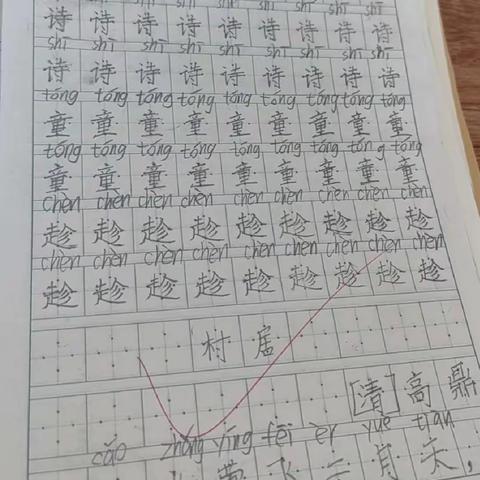 诗 诗 诗 诗 诗 诗 诗 诗 诗
shī shī shī shī shī shī shī shī shī
诗 诗 诗 诗 诗 诗 诗 诗 诗
tóng tóng tóng tóng tóng tóng tóng tóng tóng
童 童 童 童 童 童 童 童 童
tóng tóng tóng tóng tóng tóng tóng tóng tóng
童 童 童 童 童 童 童 童 童
chèn chèn chèn chèn chèn chèn chèn chèn chèn
趁 趁 趁 趁 趁 趁 趁 趁 趁
chèn chèn chèn chèn chèn chèn chèn chèn chèn
趁 趁 趁 趁 趁 趁 趁 趁 趁
村 居
[清] 高 鼎
cǎo zhǎng yīng fēi èr yuè tiān
莺 飞 二 月 天,